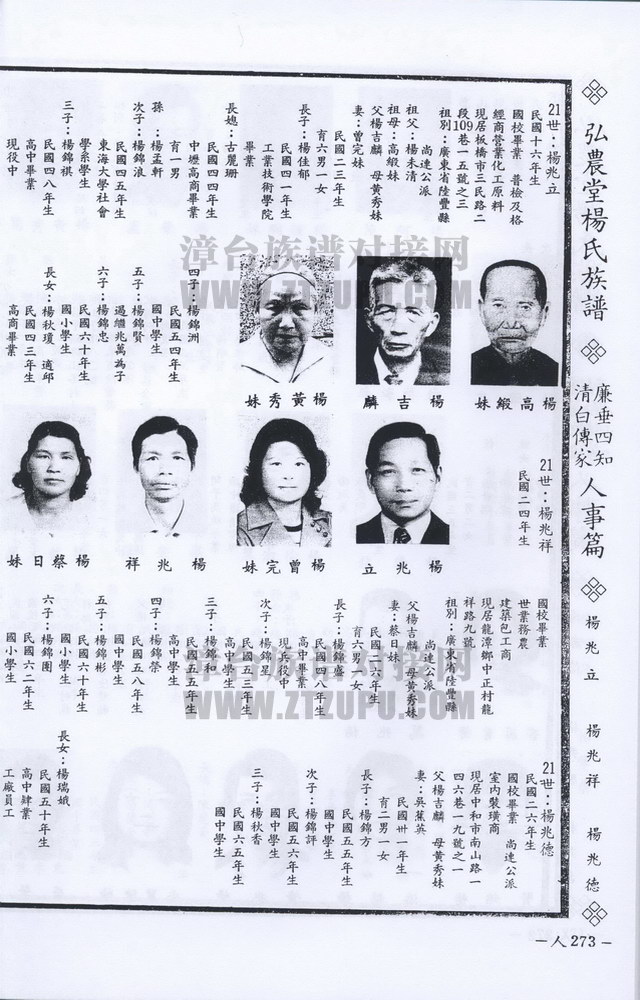 弘農堂楊氏族譜
廉垂四知
清白傳家
人事篇
楊兆立
楊兆祥
楊兆德
21世：楊兆立
民國十六年生
國校畢業　普檢及格
經商營業化工原料
現居板橋市三民路二
段109巷一五號之三
祖別：廣東省陸豐縣
尚達公派
祖父：楊未清
祖母：高緞妹
父楊吉麟　母黃秀妹
妻：曾完妹
民國二三年生
育六男一女
長子：楊佳郁
民國四一年生
工業技術學院
畢業
長媳：古麗珊
民國四四年生
中壢高商畢業
育一男
孫：楊孟軒
次子：楊錦浪
民國四五年生
東海大學社會
學系學生
三子：楊錦祺
民國四八年生
高中畢業
現役中
四子：楊錦洲
民國五四年生
國中學生
五子：楊錦賢
過繼兆萬為子
六子：楊錦忠
民國六十年生
國小學生
長女：楊秋瓊　適邱
民國四三年生
高商畢業
楊高緞妹
楊吉麟
楊黃秀妹
楊兆立
楊曾完妹
楊兆祥
楊蔡日妹
21世：楊兆祥
民國二四年生
國校畢業
世業務農
建築包工商
現居龍潭鄉中正村龍
祥路九號
祖別：廣東省陸豐縣
尚達公派
父楊吉麟　母黃秀妹
妻：蔡日妹
民國二六年生
育六男一女
長子：楊錦盛
民國四八年生
高中畢業
現兵役中
次子：楊錦星
民國五三年生
高中學生
三子：楊錦和
民國五五年生
高中學生
四子：楊錦榮
民國五八年生
國中學生
五子：楊錦彬
民國六十年生
國小學生
六子：楊錦團
民國六二年生
國小學生
長女：楊瑞娥
民國五十年生
高中肄業
工廠員工
21世：楊兆德
民國二六年生
國校畢業　尚達公派
室內裝璜商
現居中和市南山路一
四六巷一九號之一
父楊吉麟　母黃秀妹
妻：吳蕉英
民國卅一年生
育二男一女
長子：楊錦方
民國五五年生
國中學生
次子：楊錦評
民國五六年生
國中學生
三子：楊秋香
民國六五年生
國中學生
漳台族谱对接网
WWW.ZTZUPU.COM
漳台族谱对接网
WWW.ZTZUPU.COM
－人273－